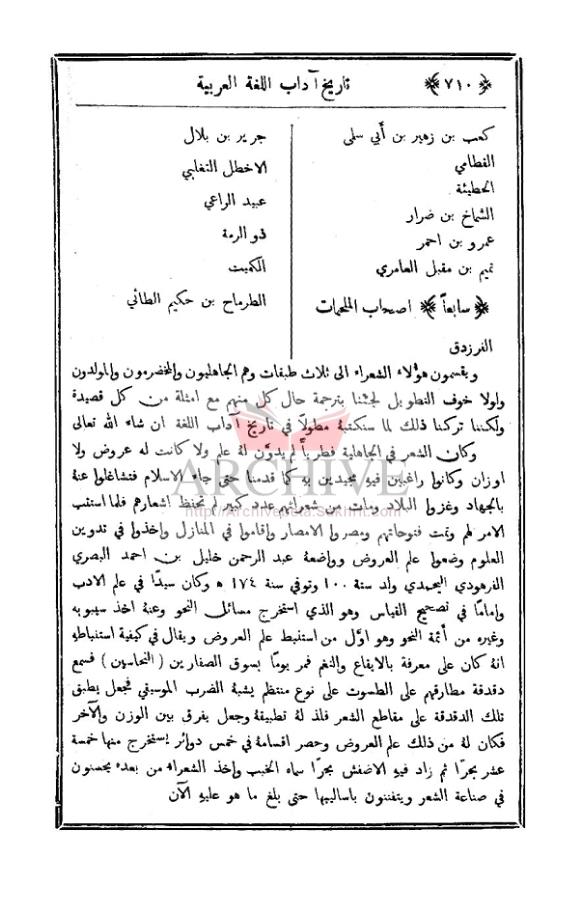 ﴿٧١٠﴾ تاريخ آداب اللغة العربية
كعب بن زهير بن أبي سلمى
القطامي
الحطيئة
الشماخ بن ضرار
عمرو بن احمر
تميم بن مقبل العامري
﴿سابعاً﴾ اصحاب الملحمات
الفرزدق
جرير بن بلال
الاخطل التغلبي
عبيد الراعي
ذو الرمة
الكميت
الطرماح بن حكيم الطائي
ويقسمون هؤلاء الشعراء الى ثلاث طبقات وهم الجاهليون والمخضرمون والمولدون
ولولا خوف التطويل لجئنا بترجمة حال كل منهم مع امثلة من كل قصيدة
ولكننا تركنا ذلك لما سنكتبهُ مطولاً في تاريخ آداب اللغة ان شاء الله تعالى
وكان الشعر في الجاهلية فطرياً لم يدوَّن لهُ علم ولا كانت له عروض ولا
اوزان وكانوا راغبين فيهِ مجيدين بهِ كما قدمنا حتى جاء الاسلام فتشاغلوا عنهُ
بالجهاد وغزوا البلاد ومات من شعرائهم عدد كبير لم تحفظ اشعارهم فلما استتب
الامر لهم وتمت فتوحاتهم ومصروا الامصار واقاموا في المنازل واخذوا في تدوين
العلوم وضعوا علم العروض وواضعهُ عبد الرحمن خليل بن احمد البصري
الفرهودي اليحمدي ولد سنة ١٠٠ وتوفي سنة ١٧٤ ه وكان سيدًا في علم الادب
وإمامًا في تصحيح القياس وهو الذي استخرج مسائل النحو وعنهُ اخذ سيبويه
وغيره من أئمة النحو وهو اوَّل من استنبط علم العروض ويقال في كيفية استنباطهِ
انهُ كان على معرفة بالايقاع والنغم فمر يومًا بسوق الصفارين (النحاسين) فسمع
دقدقة مطارقهم على الطسوت على نوع منتظم يشبهُ الضرب الموسيقي فجعل يطبق
تلك الدقدقة على مقاطع الشعر فلذ لهُ تطبيقهُ وجعل يفرق بين الوزن والآخر
فكان لهُ من ذلك علم العروض وحصر اقسامهُ في خمس دوائر يستخرج منها خمسة
عشر بحرًا ثم زاد فيهِ الاخفش بحرًا سماه الخبب واخذ الشعراء من بعده يحسنون
في صناعة الشعر ويتفننون باساليبها حتى بلغ ما هو عليهِ الآن
ARCHIVE